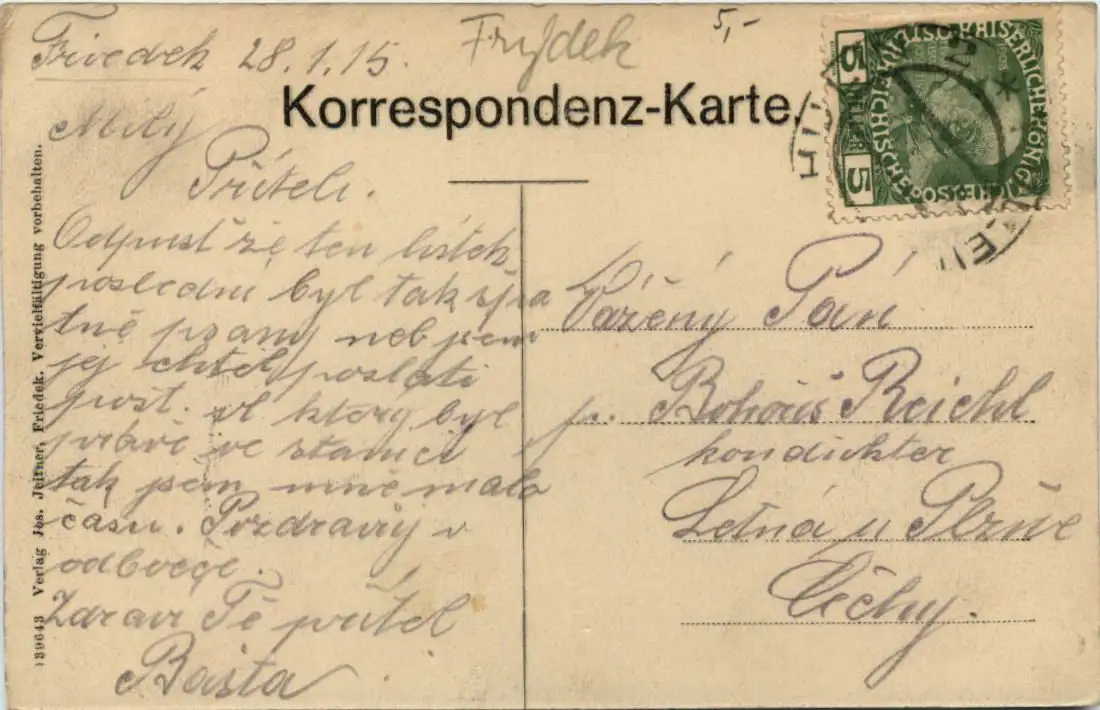 Friedek 28.1.15.
Frýdek
5,-
Korrespondenz-Karte.
Milý
Příteli.
Odpusť že ten lístek
poslední byl tak špa
tně psaný neb jsem
jej chtěl poslati
pošt. vl který byl
právě ve stanici
tak jsem měl málo
času. Pozdravuj v
Zdraví Tě přítel
Bašta
Vážený Pán
p. Bohouš Reichl
kondukter
Letná u Plzně
Čechy.
5 HELLER 5
KAISERLICHE KÖNIGLICHE ÖSTERREICHISCHE POST
139643 Verlag Jos. Jeitner, Friedek. Vervielfältigung vorbehalten.